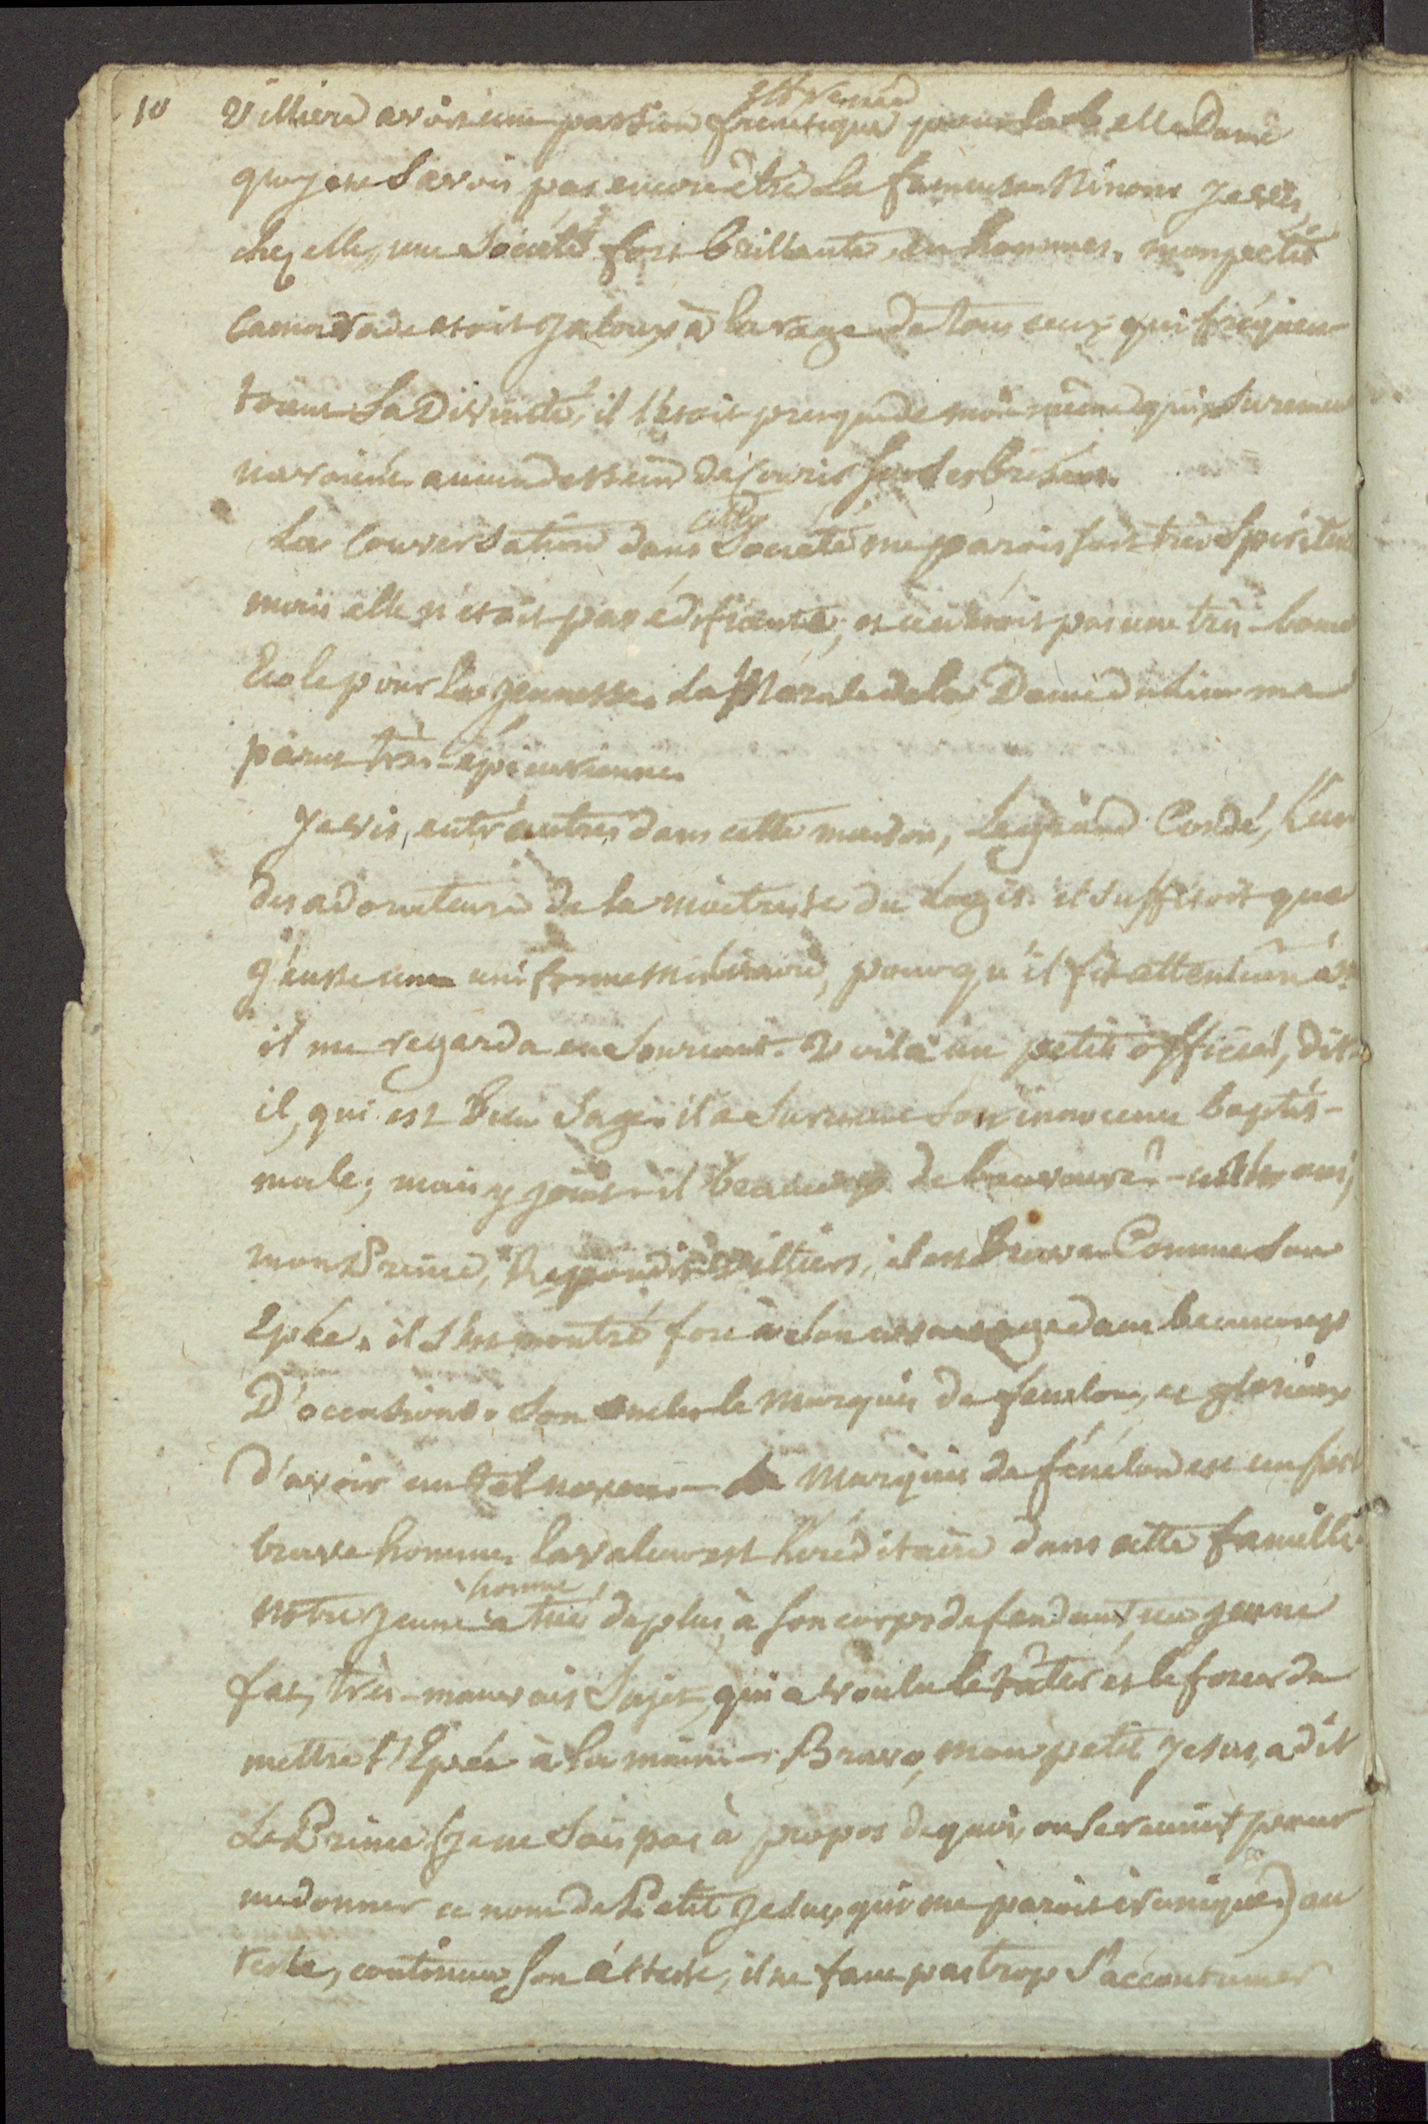 10
effrenée
Villiers avoit une passion frénétique pour la belle Dame
que je ne savois pas encore être la fameuse Ninon. Je vis,
chez elle, une Société fort brillante, en hommes. mon petit
Camarade etoit jaloux à la rage de tous ceux qui fréquen-
toient sa Divinité, il l'etoit presque de moi même qui, surement
n'avoient aucun dessein de Courir sur ses brisées.
cette
La Conversation dans Société me parois fort très Spirituelle
mais elle n'étoit pas édifiante; et ce n'étoit pas une très-bonne
Ecole pour la jeunesse. La Morale de la Dame du lieu me
parut très-épicurienne.
Je vis, entr'autres dans cette maison, le grand Condé, l'un
des adorateurs de la maitresse du logis. il suffisoit que
j'eusse un uniforme militaire, pour qu'il fit attention à
il me regarda en souriant. Voilà un petit officier, dit-
il, qui est bien sage. il a surement son innocence baptis-
male; mais y joint-il beaucoup de bravoure? - oui,
mon Prince, Répondit Villiers, il est Brave Comme son
Epée. il s'est montré fort à son avantage dans beaucoup
D'occasions. Son oncle le Marquis de fenelon, est glorieux
d'avoir un tel neveu. - Le Marquis de fénélon est un fort
brave homme. la valeur est héréditaire dans cette famille.
homme
notre jeune a tué de plus, à son corps défendant, un jeune
fat, très-mauvais Sujet, qui a voulu le tâter et le forcer de
mettre l'Epée à la main. - Bravo, mon petit Jesus, a dit
Le Prince (je ne sais pas à propos de quoi, on se réunit pour
me donner ce nom de Petit Jesus, qui me paroit ironique.) au
reste, continua Son Altesse, il ne faut pas trop s'accoutumer